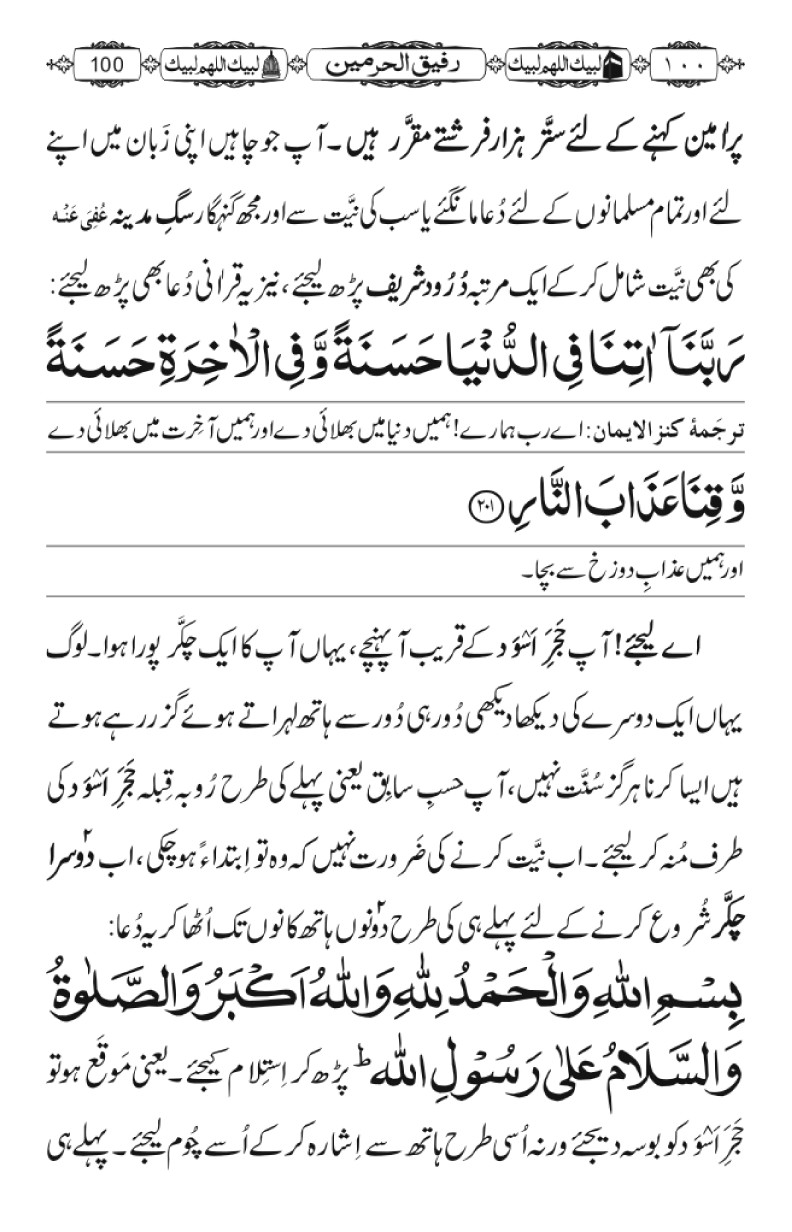 ۱۰۰ لبیك اللھم لبیك رفیق الحرمین لبیك اللھم لبیك 100
پراٰمین کہنے کے لئے ستّر ہزار فِرِشتے مقرَّر ہیں۔ آپ جو چاہیں اپنی زَبان میں اپنے
لئے اور تمام مسلمانوں کے لئے دُعا مانگئے یا سب کی نیَّت سے اور مجھ گنہگار سگِ مدینہ عُفِیَ عَنْہ
کی بھی نیَّت شامل کر کے ایک مرتبہ دُرُود شریف پڑھ لیجئے، نیز یہ قراٰنی دُعا بھی پڑھ لیجئے:
رَبَّنَاۤ اٰتِنَا فِی الدُّنْیَا حَسَنَةً وَّ فِی الْاٰخِرَةِ حَسَنَةً
ترجَمۂ کنز الایمان: اے رب ہمارے! ہمیں دنیا میں بھلائی دے اور ہمیں آخِرت میں بھلائی دے
وَّ قِنَا عَذَابَ النَّارِ ﴿۲۰۱﴾
اور ہمیں عذابِ دوزخ سے بچا۔
اے لیجئے! آپ حَجَرِ اَسْوَد کے قریب آپہنچے، یہاں آپ کا ایک چکَّر پورا ہوا۔ لوگ
یہاں ایک دوسرے کی دیکھا دیکھی دُور ہی دُور سے ہاتھ لہراتے ہوئے گزر رہے ہوتے
ہیں ایسا کرنا ہرگز سُنَّت نہیں، آپ حسبِ سابِق یعنی پہلے کی طرح رُو بہ قِبلہ حَجَرِ اَسْوَد کی
طرف مُنہ کر لیجئے۔ اب نیَّت کرنے کی ضَرورت نہیں کہ وہ تو اِبتداءً ہوچکی، اب دوسرا
چکَّر شُروع کرنے کے لئے پہلے ہی کی طرح دونوں ہاتھ کانوں تک اُٹھا کر یہ دُعا:
بِسْمِ اللّٰهِ وَالْحَمْدُ لِلّٰهِ وَاللّٰهُ اَكْبَرُ وَالصَّلٰوةُ
وَالسَّلَامُ عَلٰى رَسُوْلِ اللّٰهِ ط پڑھ کر اِستِلام کیجئے۔ یعنی مَوقع ہو تو
حَجَرِ اَسْوَد کو بوسہ دیجئے ورنہ اُسی طرح ہاتھ سے اِشارہ کرکے اُسے چُوم لیجئے۔ پہلے ہی